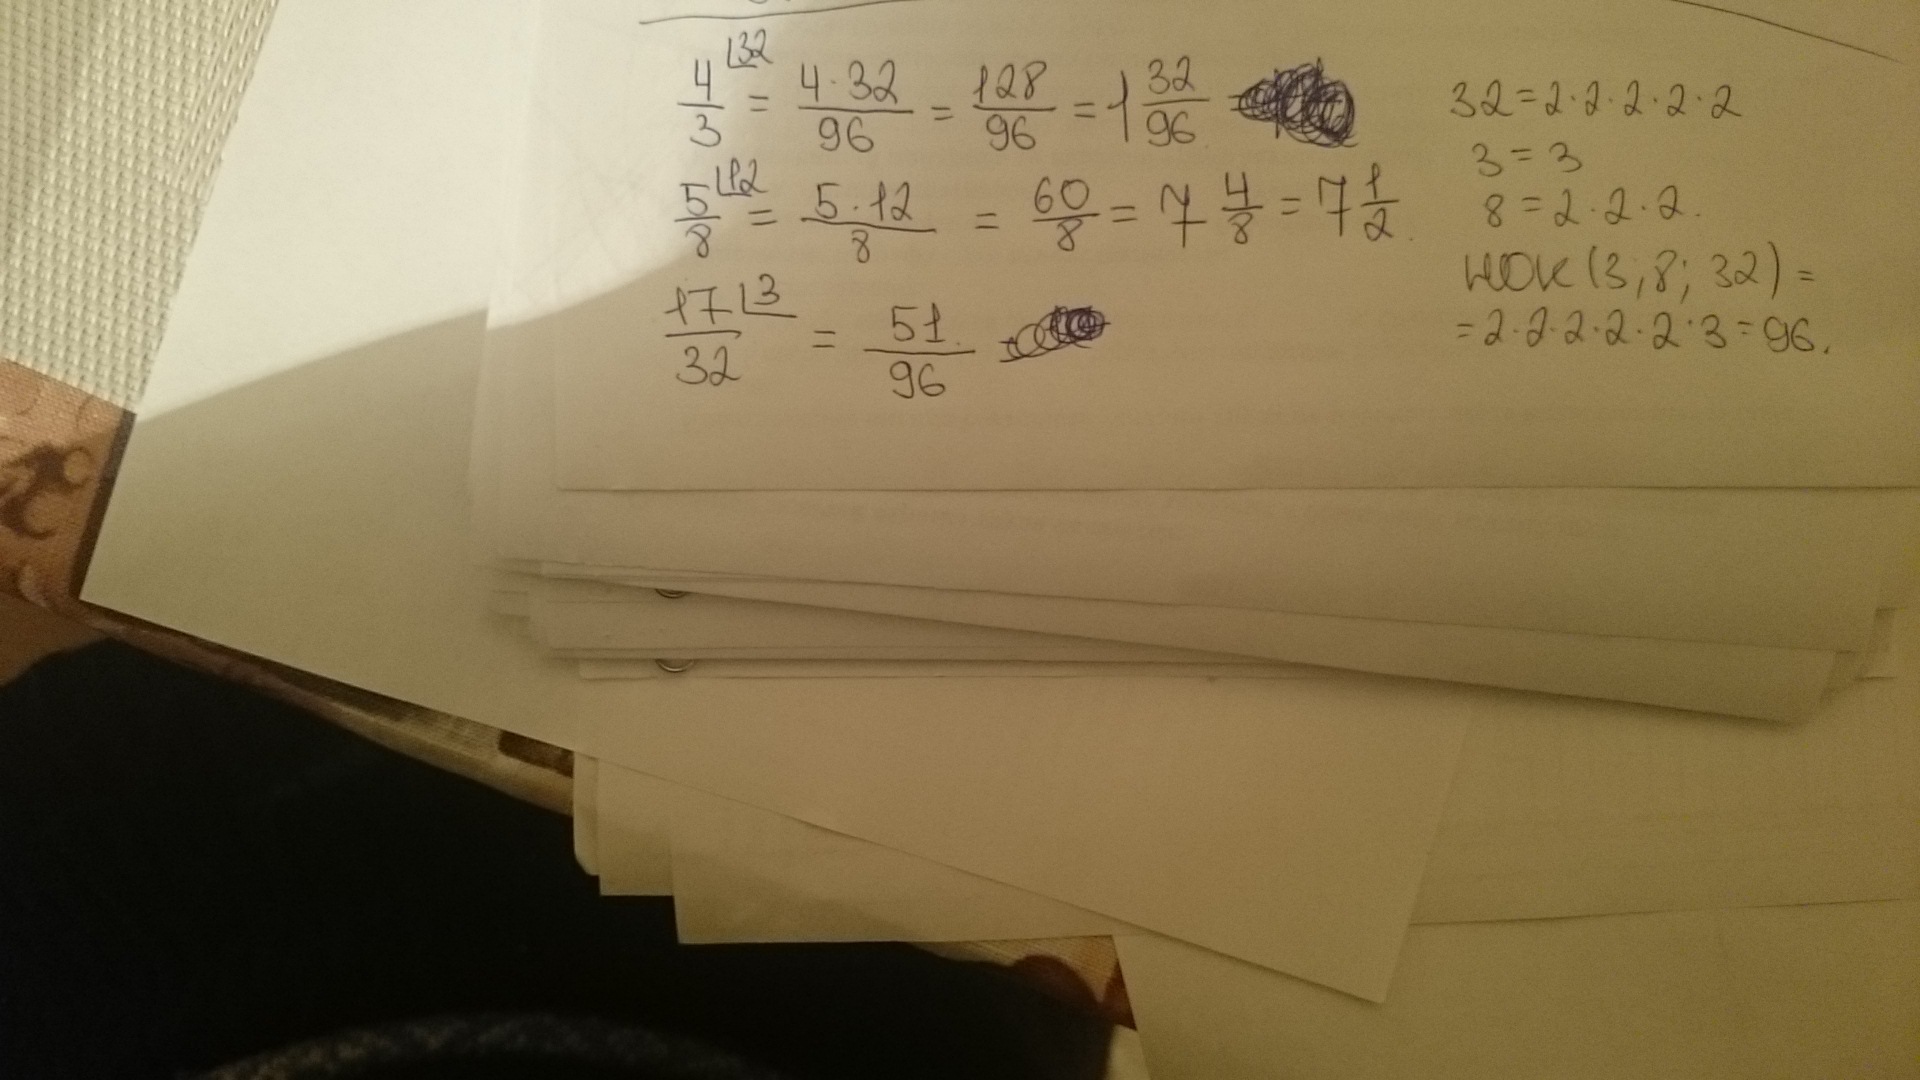 4/3 ⌊32 = 4·32/96 = 128/96 = 1 32/96
5/8 ⌊12 = 5·12/8 = 60/8 = 7 4/8 = 7 1/2.
17/32 ⌊3 = 51/96
32=2·2·2·2·2
3=3
8=2·2·2.
НОК(3;8;32)=
=2·2·2·2·2·3=96.